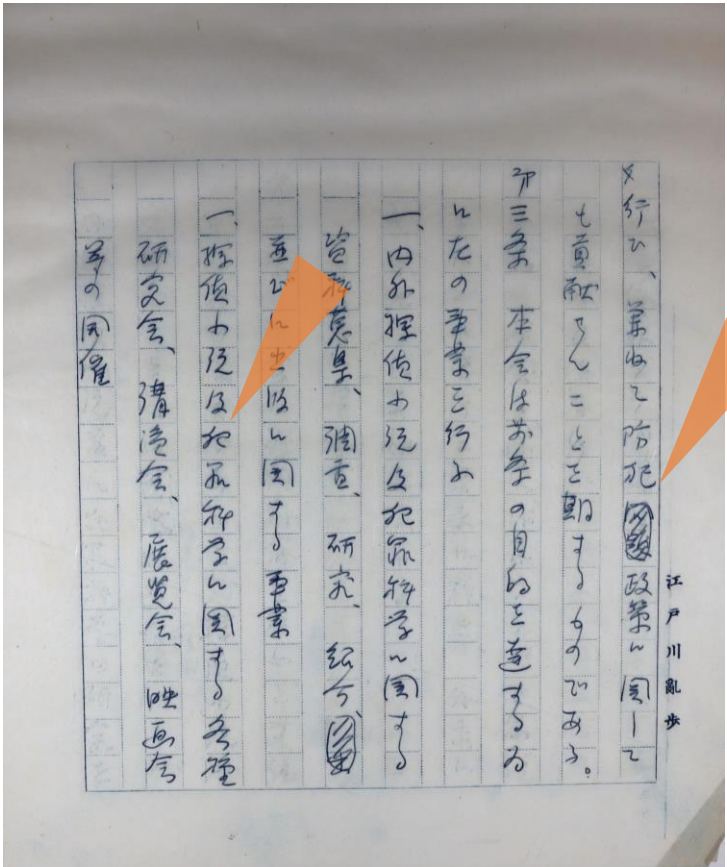 を行ひ、兼ねて防犯政策に関して
も貢献せんことを期するものである。
第三条 本会は前条の目的を達する為
に左の事業を行ふ
一、内外探偵小説及犯罪科学に関する
資料蒐集、調査、研究、紹介、
並びに出版に関する事業
一、探偵小説及犯罪科学に関する各種
研究会、講演会、展覧会、映画会
等の開催
江戸川亂歩